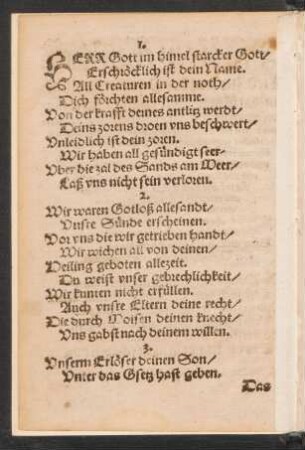 1.
HERR Gott im himel starcker Gott/
Erschröcklich ist dein Name.
All Creaturen in der noth/
Dich förchten allesamme.
Von der krafft deines antlitz werdt/
Deins zorens droen vns beschwert/
Vnleidlich ist dein zoren.
Wir haben all gesündigt seer/
Vber die zal des Sands am Meer/
Laß vns nicht sein verloren.
2.
Wir waren Gotloß allesandt/
Vnsre Sünde erscheinen.
Vor vns die wir getrieben handt/
Wir wichen all von deinen/
Heiling geboten allezeit.
Du weist vnser gebrechlichkeit/
Wir kunten nicht erfüllen.
Auch vnsre Eltern deine recht/
Die durch Moisen deinen knecht/
Vns gabst nach deinem willen.
3.
Vnserm Erlöser deinen Son/
Vnter das Gsetz hast geben.
Das